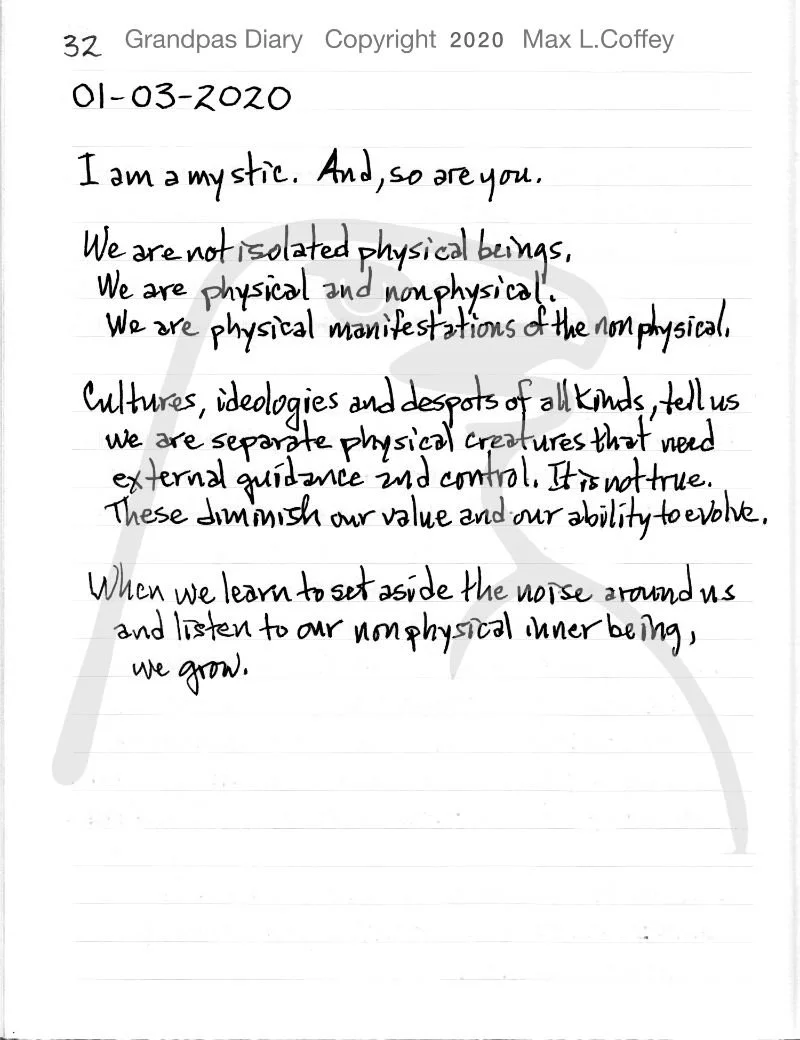 32 Grandpas Diary Copyright 2020 Max L.Coffey
01-03-2020
I am a mystic. And, so are you.
We are not isolated physical beings.
We are physical and nonphysical.
We are physical manifestations of the nonphysical.
Cultures, ideologies and despots of all kinds, tell us
we are separate physical creatures that need
external guidance and control. It is not true.
These diminish our value and our ability to evolve.
When we learn to set aside the noise around us
and listen to our nonphysical inner being,
we grow.